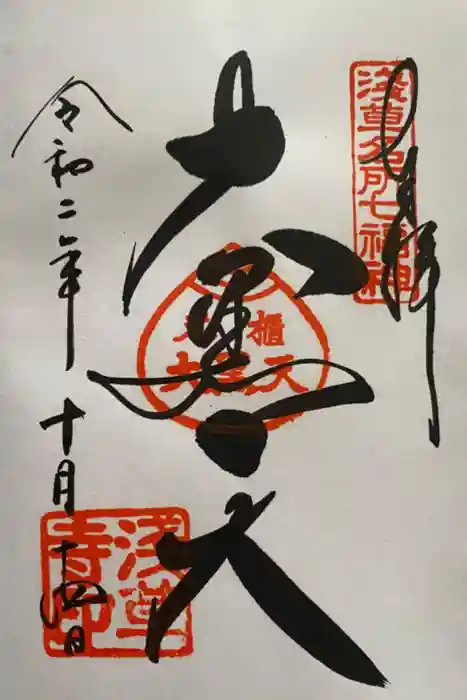 奉拝
浅草名所七福神
大黒天
令和二年
十月十四日
浅草寺印